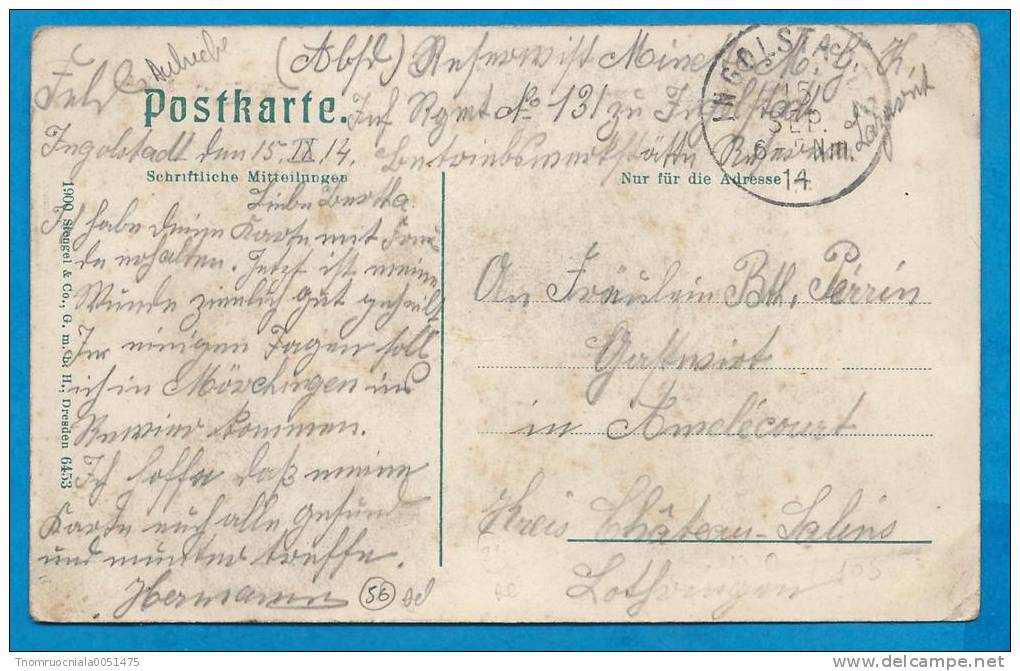 (Absd) Reserwist Minet M. G. K.
Feld Postkarte. Inf Rgmt No 131 zu Ingolstadt
Ingolstadt den 15. IX 14. Betriebswerkstätte Reserve Lazarett
INGOLSTADT
15
SEP.
6- Nm.
14
Schriftliche Mitteilungen
Nur für die Adresse
Liebe Bertha
Ich habe deine Karte mit Freu
de erhalten. Jetzt ist meine
Wunde ziemlich gut geheilt
In einigen Tagen soll
ich in Mörchingen ins
Rewier kommen.
Ich hoffe daß meine
Karte euch alle gesund
und munter treffe.
Hermann
56
An Fräulein Bth. Perrin
Gastwirt
in Amelécourt
Kreis Château-Salins
Lothringen
105
1900 Stengel & Co., G. m. b. H., Dresden 6453
Thomruocniala0051475
delcampe.net